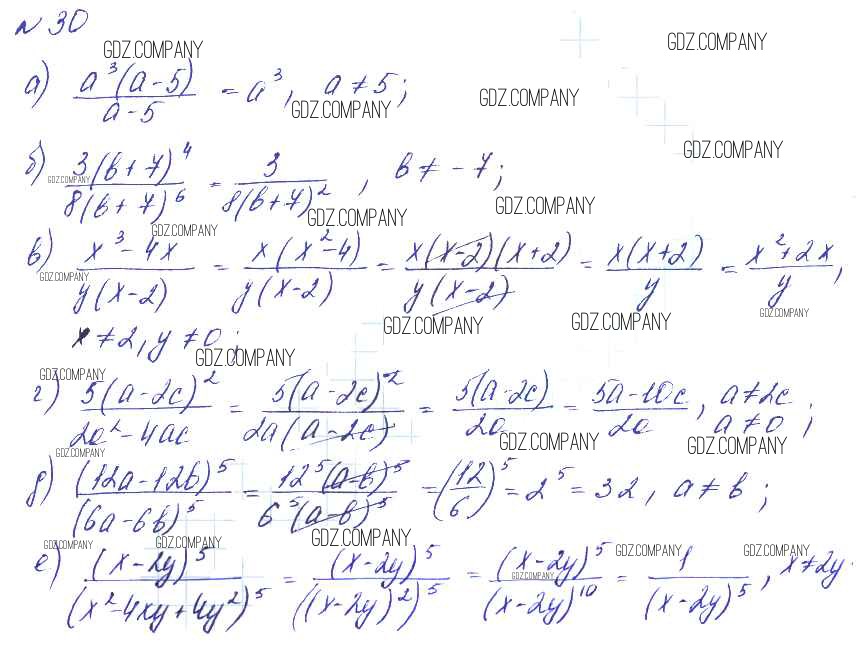 № 30
GDZ.COMPANY GDZ.COMPANY
а) a³(a-5)/(a-5) = a³, a ≠ 5;
GDZ.COMPANY GDZ.COMPANY
GDZ.COMPANY
б) 3(b+7)⁴/8(b+7)⁶ = 3/8(b+7)², b ≠ -7;
GDZ.COMPANY
GDZ.COMPANY GDZ.COMPANY GDZ.COMPANY
в) (x³-4x)/y(x-2) = x(x²-4)/y(x-2) = x(x-2)(x+2)/y(x-2) = x(x+2)/y = (x²+2x)/y,
GDZ.COMPANY
x ≠ 2, y ≠ 0;
GDZ.COMPANY GDZ.COMPANY GDZ.COMPANY
GDZ.COMPANY
GDZ.COMPANY
г) 5(a-2c)²/(2a²-4ac) = 5(a-2c)²/2a(a-2c) = 5(a-2c)/2a = (5a-10c)/2a, a ≠ 2c, a ≠ 0;
GDZ.COMPANY GDZ.COMPANY
GDZ.COMPANY
д) (12a-12b)⁵/(6a-6b)⁵ = 12⁵(a-b)⁵/6⁵(a-b)⁵ = (12/6)⁵ = 2⁵ = 32, a ≠ b;
GDZ.COMPANY GDZ.COMPANY GDZ.COMPANY GDZ.COMPANY GDZ.COMPANY
е) (x-2y)⁵/(x²-4xy+4y²)⁵ = (x-2y)⁵/((x-2y)²)⁵ = (x-2y)⁵/(x-2y)¹⁰ = 1/(x-2y)⁵, x ≠ 2y
GDZ.COMPANY